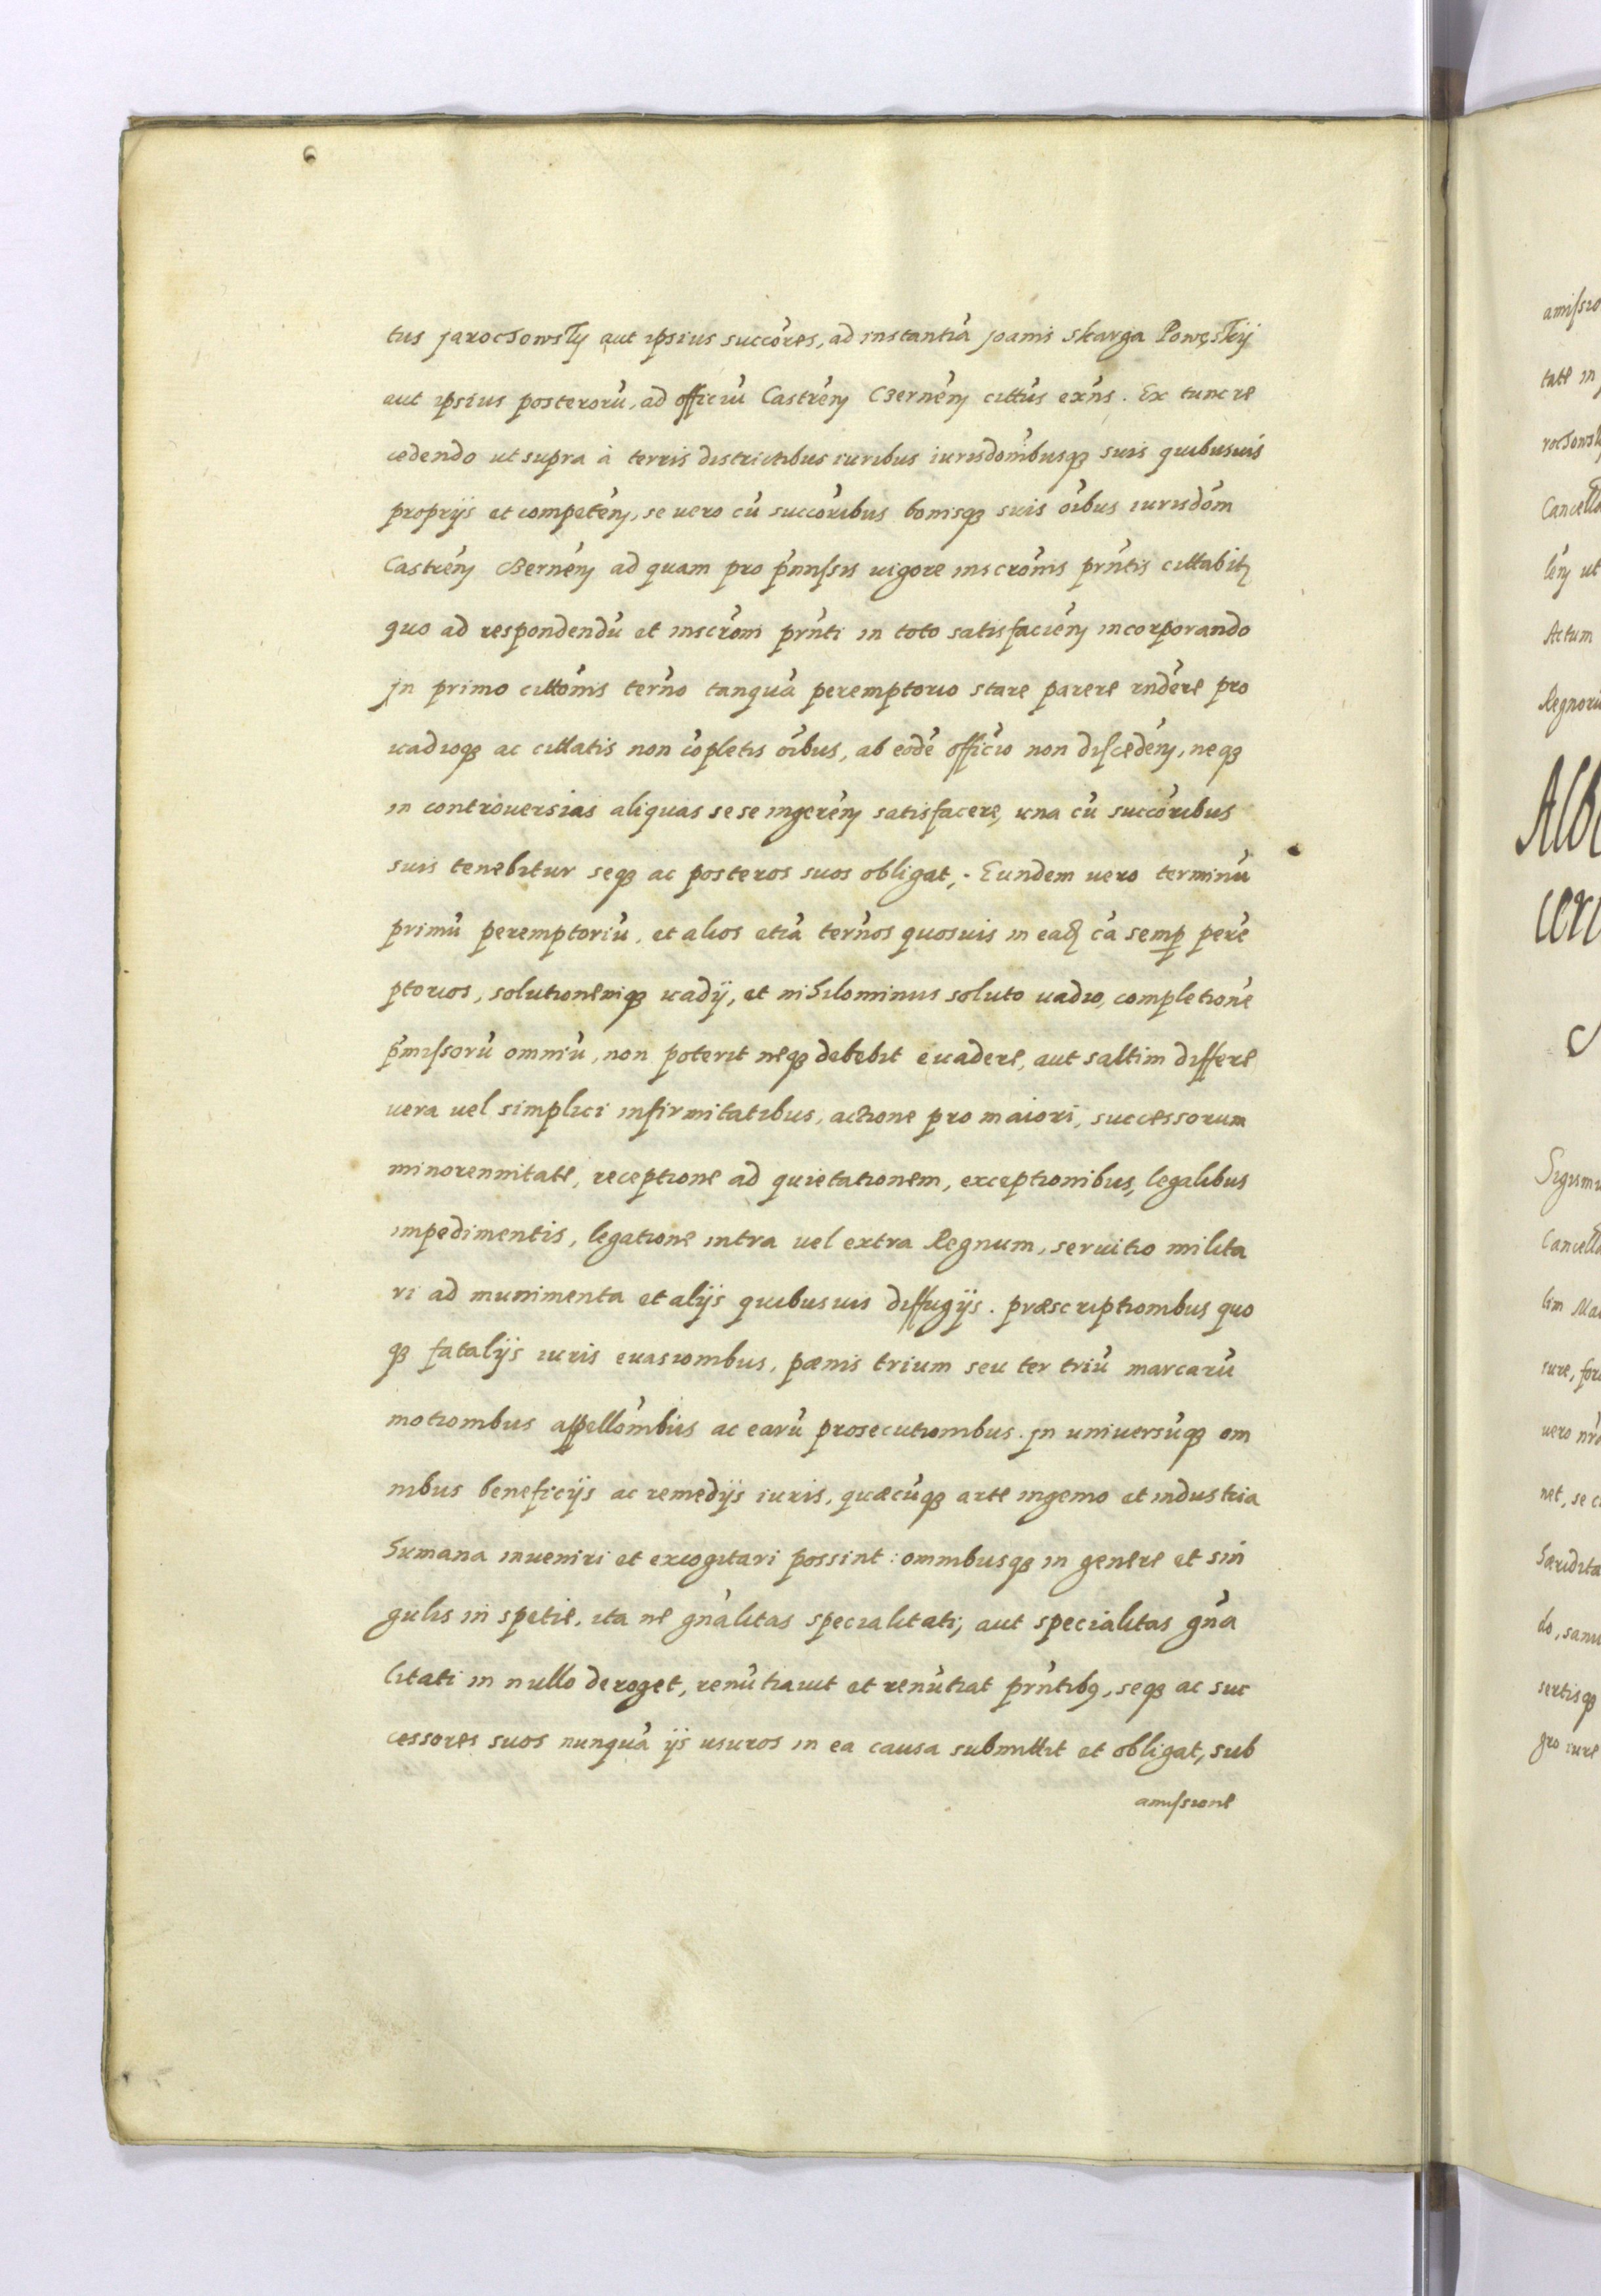 6
tus Jarochowsky aut ipsius succőres, ad instantiã Joanis Skarga Powęskij
aut ipsius posterorũ, ad officiũ Castrẽn Cernẽn cittũs exñs. Ex tunc re
cedendo ut supra à terris districtibus iuribus iurisdõnibusq3 suis quibusuis
proprijs et competẽn, se uero cũ succõribus bonisq3 suis õibus iurisdõni
Castrẽn Cernẽn ad quam pro p̃missis uigore inscrõnis pr̃ntis cittabit
quo ad respondendũ et inscrõni pr̃nti in toto satisfaciẽn incorporando
Jn primo cittõnis ter̃no tanquã peremptorio stare parere rñdere pro
uadioq3 ac cittatis non cõpletis õibus, ab eodẽ officio non discedẽn, neq3
in controuersias aliquas sese ingerẽn satisfacere, una cũ succõribus
suis tenebitur seq3 ac posteros suos obligat. Eundem uero terminũ
primũ peremptoriũ, et alios etiã ter̃nos quosuis in ead cã semp perẽ
ptorios, solutionemq3 uadij, et nihilominus soluto uadio, completionẽ
p̃missorũ omniũ, non poterit neq3 debebit euadere, aut saltim differe
uera uel simplici infirmitatibus, actione pro maiori, successorum
minorennitate, receptione ad quietationem, exceptionibus, legalibus
impedimentis, legatione intra uel extra Regnum, seruitio milita
ri ad munimenta et alijs quibusuis diffugijs. præscriptionibus quo
q3 fatalijs iuris euasionibus, pœnis trium seu ter triũ marcarũ
motionibus appellõnibus ac earũ prosecutionibus. Jn uniuersũq3 om
nibus beneficijs ac remedijs iuris, quæcũq3 arte ingenio et industria
humana inueniri et excogitari possint: omnibusq3 in genere et sin
gulis in spetie. ita ne gñalitas specialitati, aut specialitas gña
litati in nullo deroget, renũtiauit et renũtiat pr̃ntib9, seq3 ac suc
cessores suos nunquã ijs usuros in ea causa submittit et obligat, sub
amissione
amissio
tate in
Cancella
lẽn ut
Actum
Regnoru
Sigismu
Cancella
lim Ma
iure, for
uero nr̃o
net, se c
hæridita
do, sanu
sertisq3
gro iure